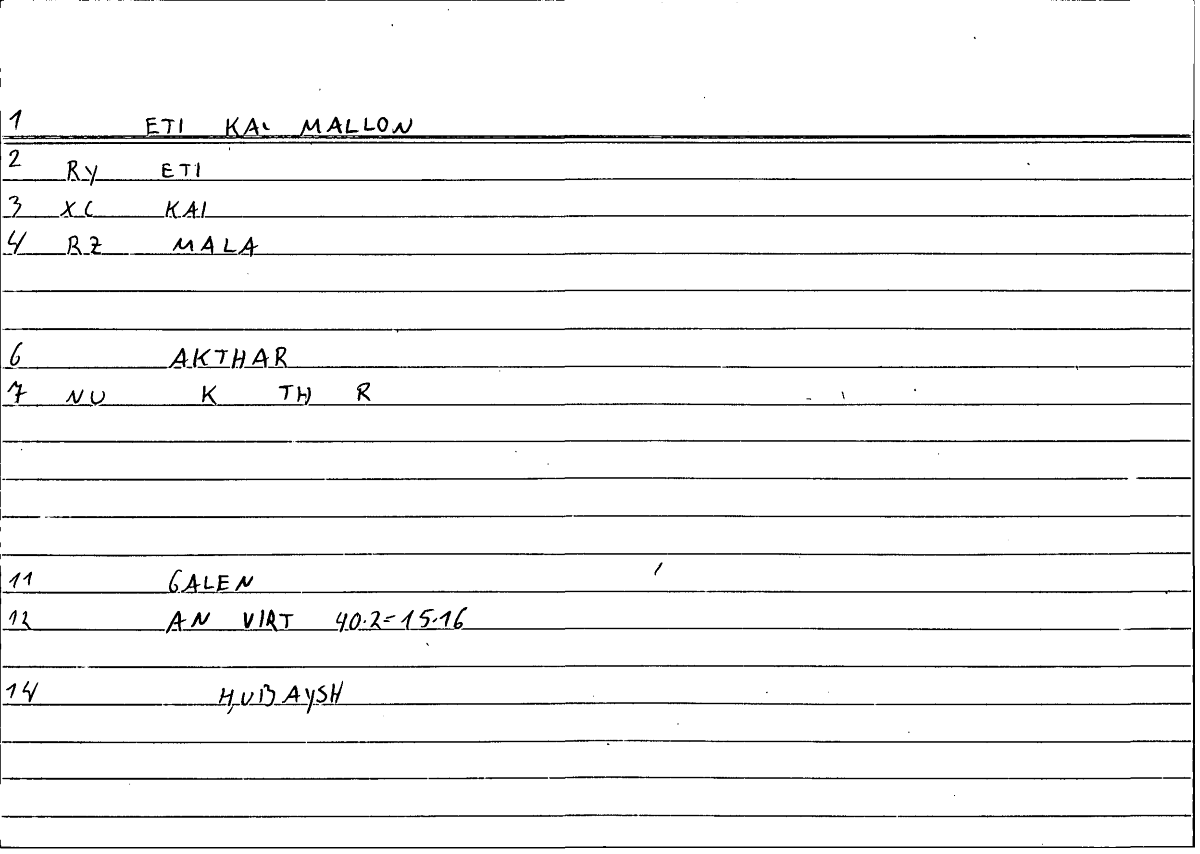 1 ETI KAI MALLON
2 RY ETI
3 XC KAI
4 RZ MALA
6 AKTHAR
7 NU K TH R
11 GALEN
12 AN VIRT 40.2=15.16
14 ḤUBAYSH